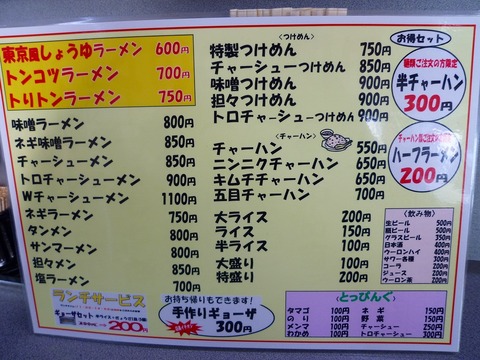 東京風しょうゆラーメン 600円
トンコツラーメン 700円
トリトンラーメン 750円
味噌ラーメン 800円
ネギ味噌ラーメン 850円
チャーシューメン 850円
トロチャーシューメン 900円
Wチャーシューメン 1100円
ネギラーメン 750円
タンメン 800円
サンマーメン 800円
担々メン 850円
塩ラーメン 700円
ランチサービス
ギョーザセット
200円
お持ち帰りもできます!
手作りギョーザ
300円
〈つけめん〉
特製つけめん 750円
チャーシューつけめん 850円
味噌つけめん 900円
担々つけめん 900円
トロチャーシューつけめん 900円
〈チャーハン〉
チャーハン 550円
ニンニクチャーハン
キムチチャーハン
五目チャーハン 700円
大ライス 200円
ライス 150円
半ライス 100円
大盛り 100円
特盛り 200円
お得セット
麺類ご注文の方限定
半チャーハン
300円
ハーフラーメン
200円
〈飲み物〉
生ビール 500円
瓶ビール 500円
グラスビール 350円
日本酒 400円
ウーロンハイ 400円
サワー各種
コーラ 200円
ジュース 200円
ウーロン茶 200円
とっぴんぐ
タマゴ 100円 ネギ 150円
のり 100円 野菜 150円
メンマ 100円 チャーシュー 250円
わかめ 100円 トロチャーシュー 300円